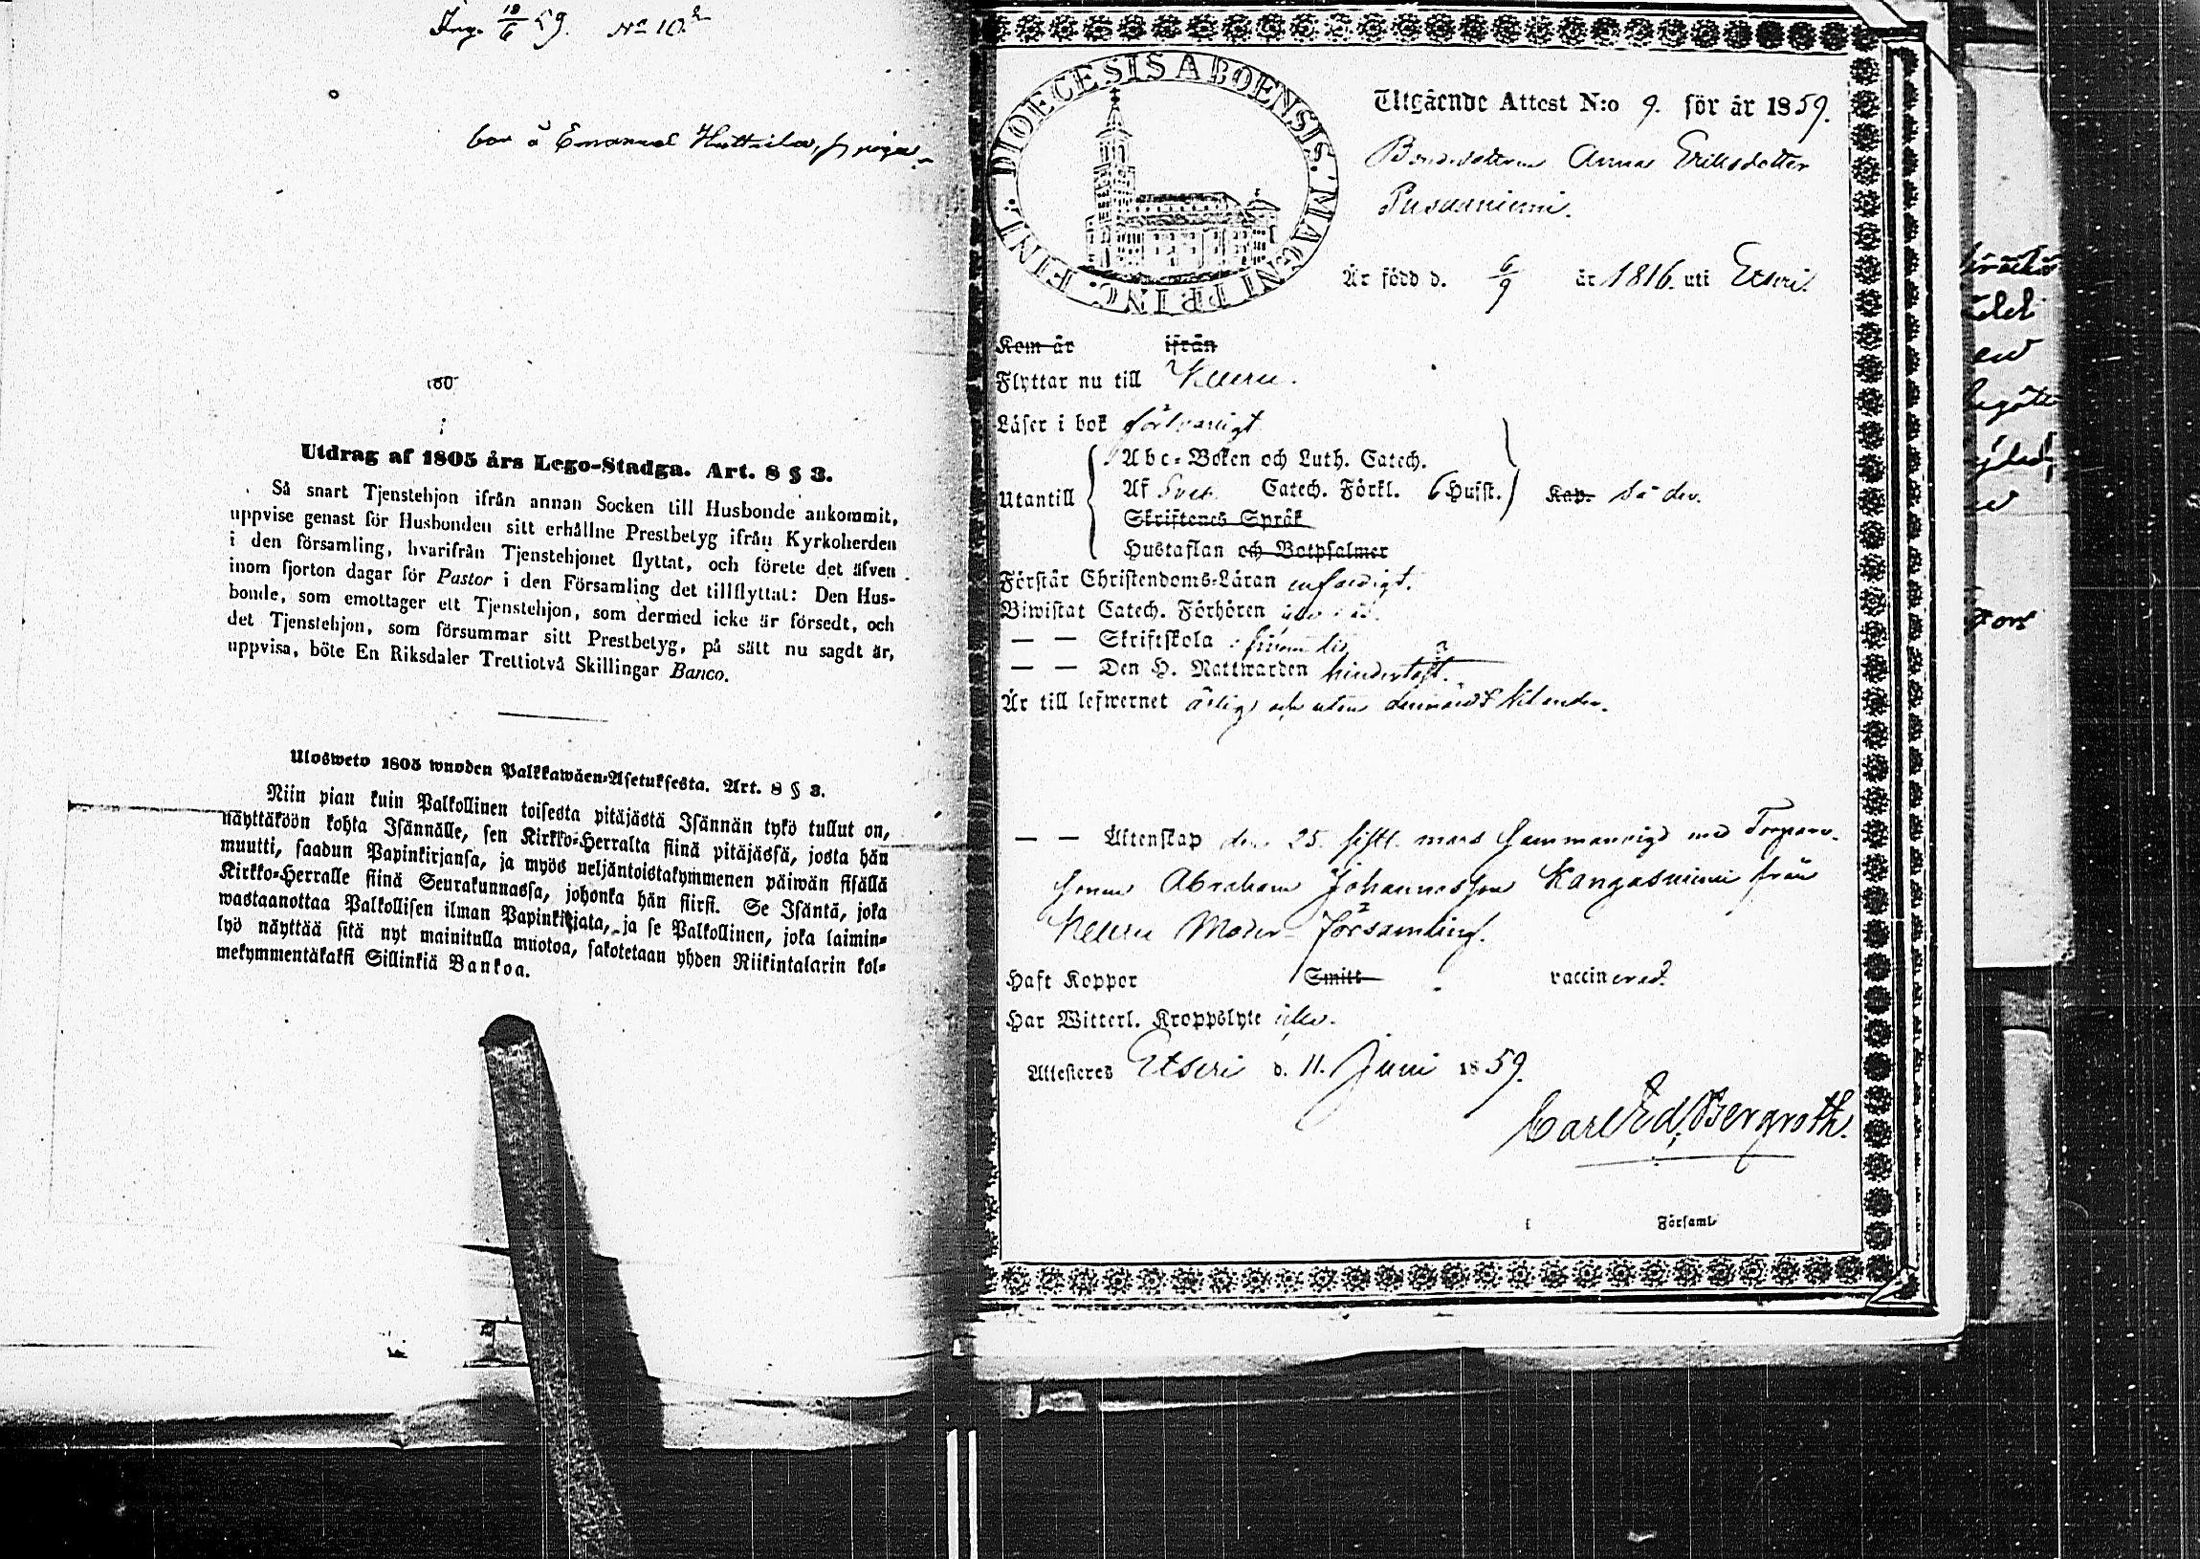 Ing. 18/6 59. No 10.
bor å Emanuel Huttula,
180
Utdrag af 1805 års Lego-Stadga. Art. 8 § 3.
Så snart Tjenstehjon ifrån annan Socken till Husbonde ankommit,
uppvise genast för Husbonden sitt erhållne Prestbetyg ifrån Kyrkoherden
i den församling, hvarifrån Tjenstehjonet flyttat, och förete det äfven
inom fjorton dagar för Pastor i den Församling det tillflyttat: Den Hus-
bonde, som emottager ett Tjenstehjon, som dermed icke är försedt, och
det Tjenstehjon, som försummar sitt Prestbetyg, på sätt nu sagdt är,
uppvisa, böte En Riksdaler Trettiotvå Skillingar Banco.
Ulosweto 1805 wuoden Palkkawäen-Asetuksesta. Art. 8 § 3.
Niin pian kuin Palkollinen toisesta pitäjästä Isännän tykö tullut on,
näyttäköön kohta Isännälle, sen Kirkko-Herralta siinä pitäjässä, josta hän
muutti, saadun Papinkirjansa, ja myös neljäntoistakymmenen päiwän sisällä
Kirkko-Herralle siinä Seurakunnassa, johonka hän siirsi. Se Isäntä, joka
wastaanottaa Palkollisen ilman Papinkirjata, ja se Palkollinen, joka laimin-
lyö näyttää sitä nyt mainitulla muotoa, sakotetaan yhden Riikintalarin kol-
mekymmentäkaksi Sillinkiä Bankoa.
DIOECESIS ABOENSIS. MAGNI PRINC. FINL.
Utgående Attest N:o 9. för år 1859.
Bondedottren Anna Eriksdotter
Pusaaniemi.
Är född d. 6/9 år 1816. uti Etseri.
Kom år ifrån
Flyttar nu till Keuru.
Läser i bok försvarligt
Utantill
Abc-Boken och Luth. Catech.
Af Sveb. Catech. Förkl. 6 Hufst. Kap.
Skriftenes Språk
Hustaflan och Botpsalmer
Förstår Christendoms-Läran enfaldigt.
Biwistat Catech. Förhören
— — Skriftskola
— — Den H. Nattwarden
Är till lefwernet ärlig och utan
— — Äktenskap den 25. sistl. mars sammanvigd med Torpare-
sonen Abraham Johannesson Kangasniemi från
Keuru Moder-församling.
Haft Koppor Smitt vaccinerad.
Har Witterl. Kroppslyte icke.
Attesteres Etseri d. 11. Juni 1859.
Carl Ed. Bergroth.
i Församl.